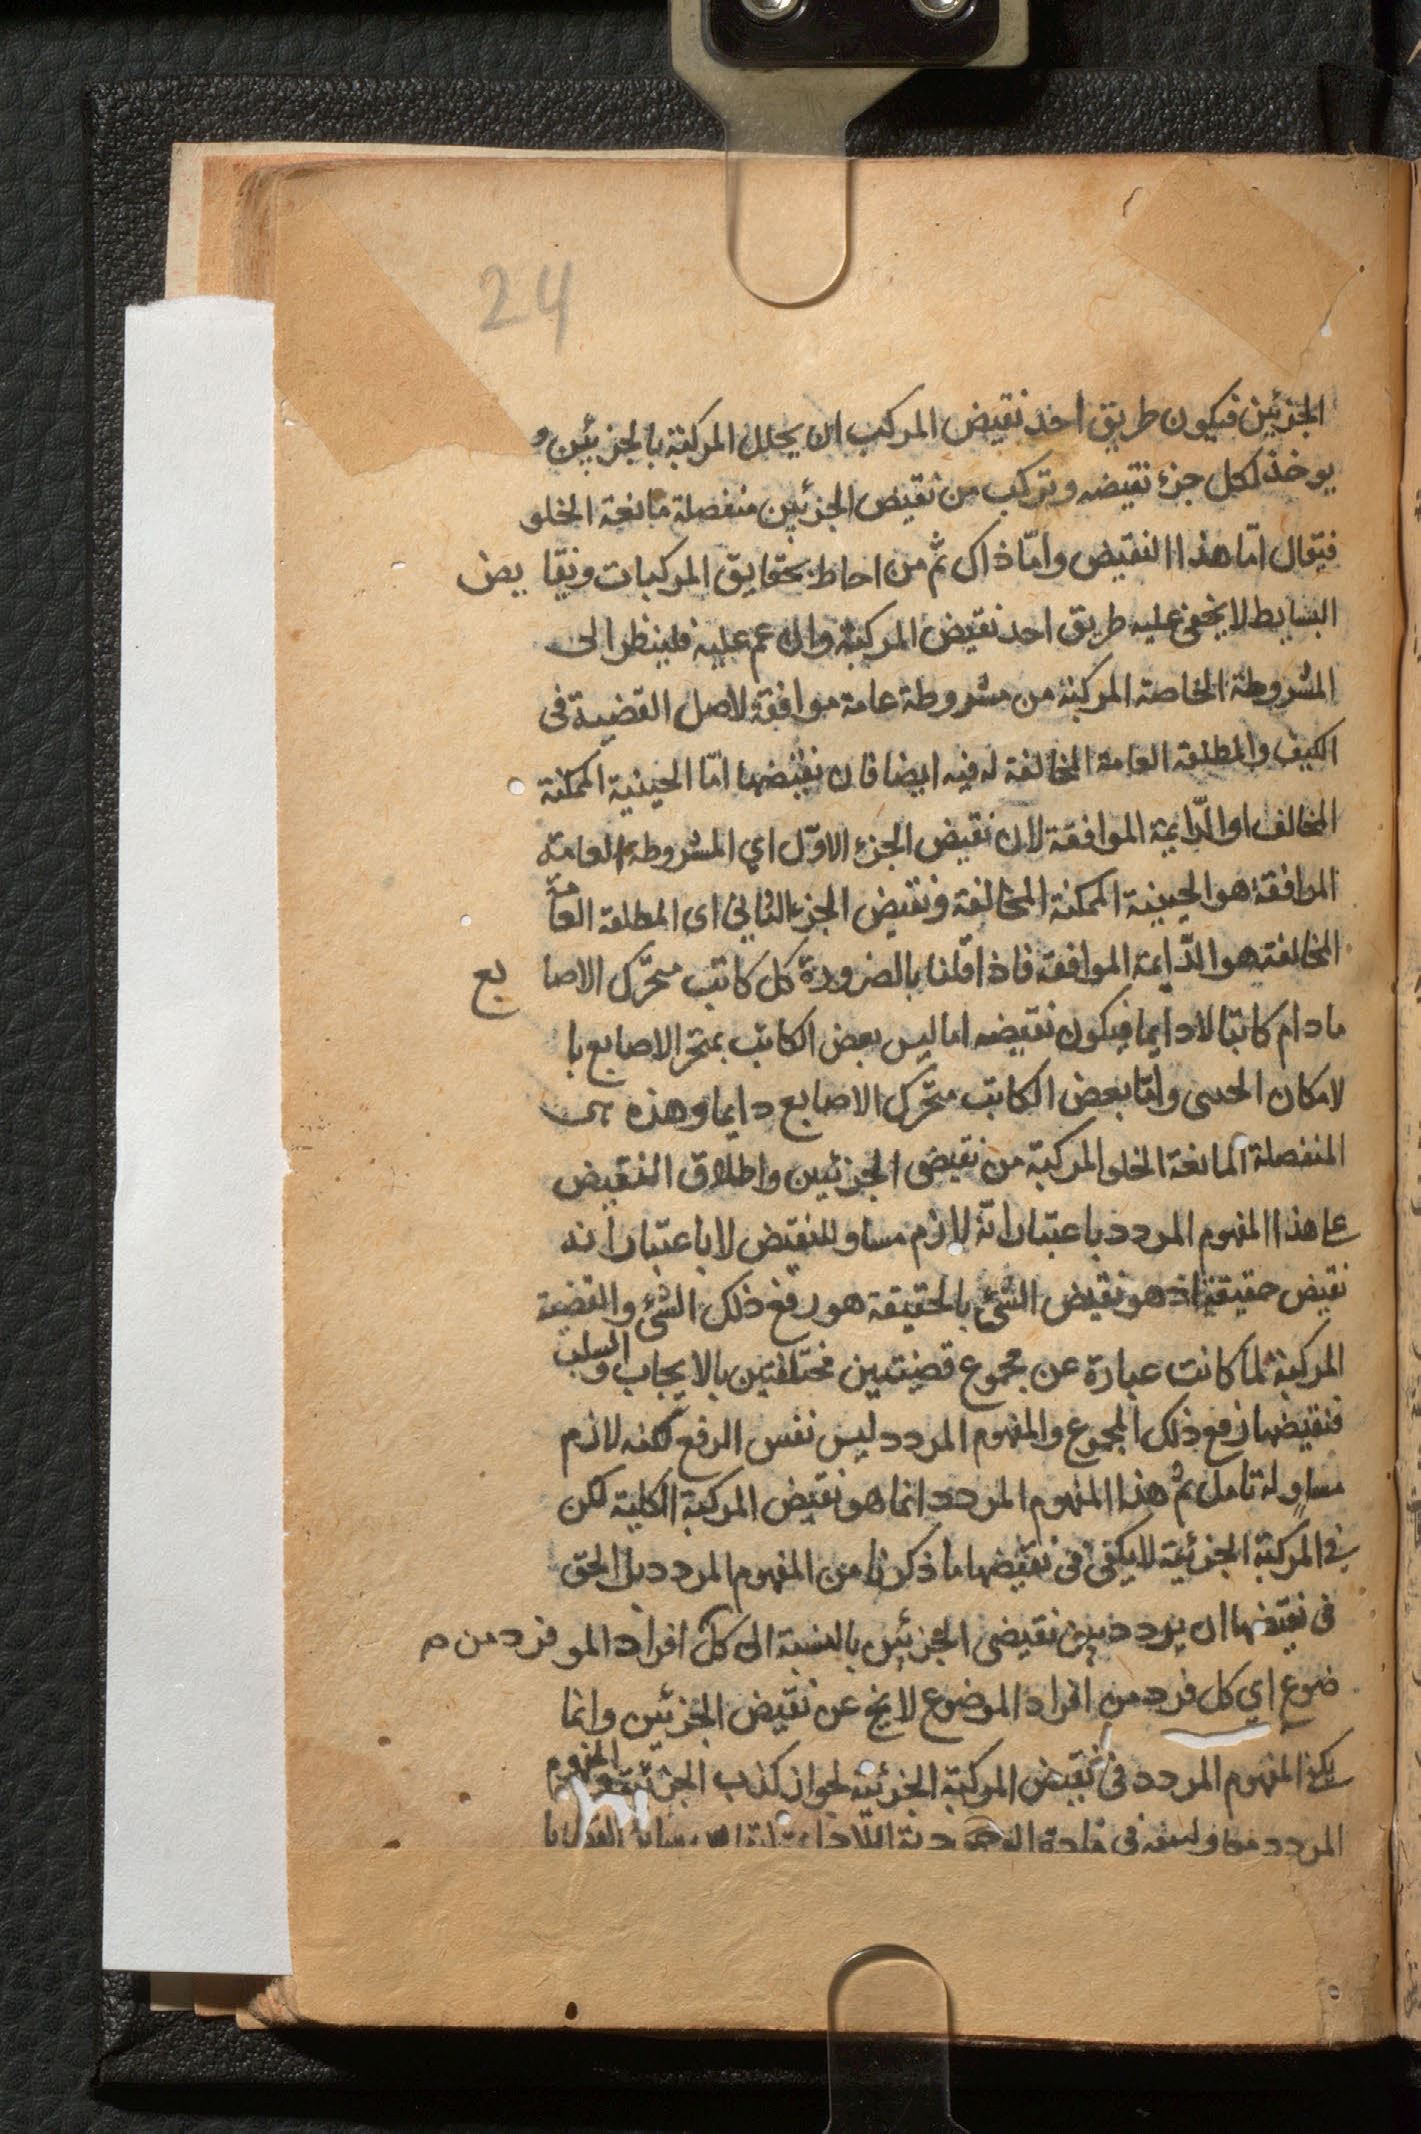 24
الجزئين فيكون طريق اخذ نقيض المركب ان يحلل المركبة بالجزئين و
يوخذ لكل جزء نقيضه وتركب من نقيض الجزئين منفصلة مانعة الخلو
فيقال امّا هذا النقيض وامّا ذاك ثم من احاط بحقايق المركبات ونقا يض
البسايط لا يخفى عليه طريق اخذ نقيض المركبة وان عم عليه فلينظر الى
المشروطة الخاصة المركبة من مشروطة عامة موافقة لاصل القضية فى
الكيف والمطلقة العامة المخالفة له فيه ايضا فان نقيضها امّا الحينية الممكنة
المخالف او الدّايمة الموافقة لان نقيض الجزء الاوّل اي المشروطة العامة
الموافقة هو الحينية الممكنة المخالفة ونقيض الجزء الثاني اى المطلقة العامّة
المخالفة هو الدّايمة الموافقة فاذا قلنا بالضرورة كل كاتب متحرّك الاصا بع
مادام كاتبا لا دايما فيكون نقيضه اما ليس بعض الكاتب بمتحر الاصابع با
لامكان الحينى وامّا بعض الكاتب متحرّك الاصابع دايما وهذه هى
المنفصلة المانعة الخلو المركبة من نقيضى الجزئين واطلاق النقيض
على هذا المفهوم المردد باعتبار انّه لازم مساو للنقيض لا باعتبار انه
نقيض حقيقة اذ هو نقيض الشئ بالحقيقة هو رفع ذلك الشئ والقضية
المركبة لما كانت عبارة عن مجموع قضيتين مختلفتين بالايجاب والسلب
فنقيضها رفع ذلك المجموع والمفهوم المردد ليس نفس الرفع لكنه لازم
مساوٍ له تامل ثم هذا المفهوم المردد انما هو نقيض المركبة الكلية لكن
فى المركبة الجزئية لا يكفى فى نقيضها ما ذكرنا من المفهوم المردد بل الحق
فى نقيضها ان يردد بين نقيضى الجزئين بالنسبة الى كل افراد المو فرد من
ضوع اي كل فرد من افراد الموضوع لا يخ عن نقيض الجزئين وانما
يكن المفهوم المردد فى نقيض المركبة الجزئية لجواز كذب الجزئية والمفهوم
المردد